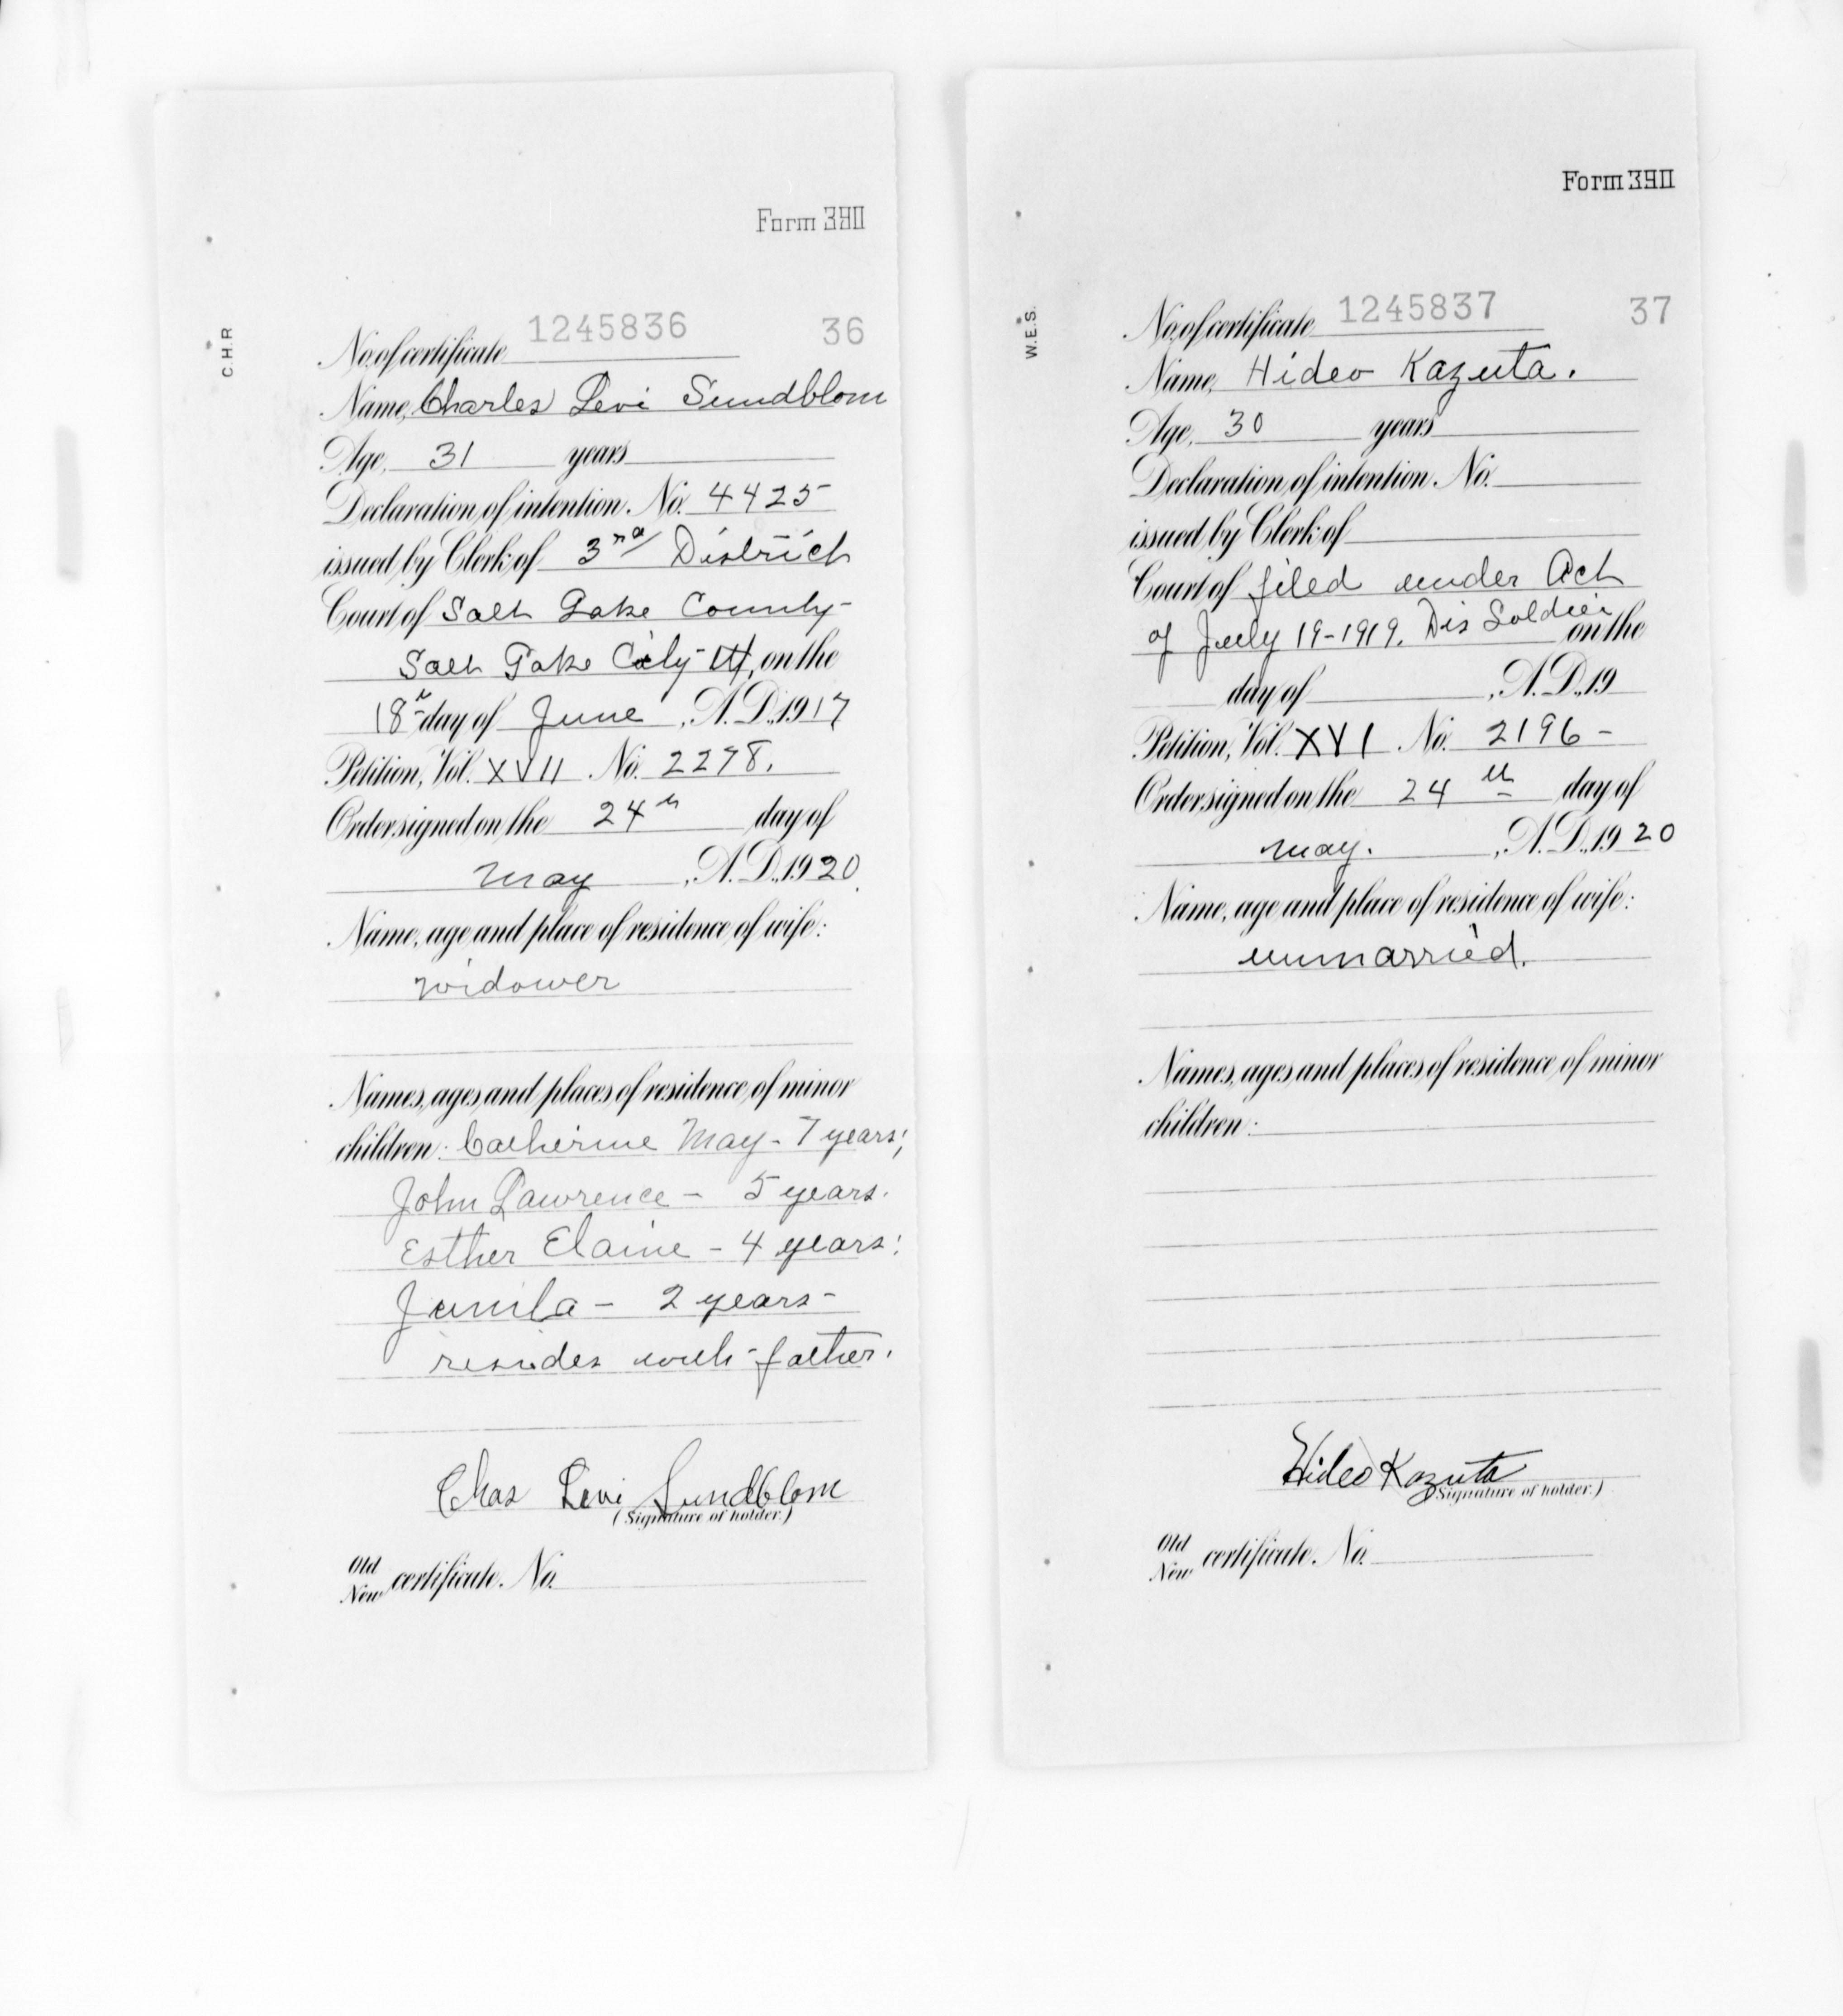 Form 390
C.H.R
No. of certificate 1245836 36
Name, Charles Levi Sundblom
Age, 31 years
Declaration of intention. No. 4425
issued by Clerk of 3rd District
Court of Salt Lake County-
Salt Lake City Ut, on the
18th day of June, A.D. 1917
Petition, Vol. XVII No. 2278.
Order signed on the 24th day of
May, A.D. 1920
Name, age and place of residence of wife:
widower
Names, ages and places of residence of minor
children: Catherine May - 7 years;
John Lawrence - 5 years.
Esther Elaine - 4 years:
Junila - 2 years -
resides with father.
Chas Levi Sundblom
(Signature of holder.)
Old
New certificate. No.
Form 390
W.E.S.
No. of certificate 1245837 37
Name, Hideo Kazuta.
Age, 30 years
Declaration of intention. No.
issued by Clerk of
Court of filed under Act
of July 19-1919. Dis Soldier on the
day of , A.D. 19
Petition, Vol. XVI No. 2196 -
Order signed on the 24th day of
May. , A.D. 1920
Name, age and place of residence of wife:
unmarried.
Names, ages and places of residence of minor
children:
Hideo Kazuta
(Signature of holder.)
Old
New certificate. No.